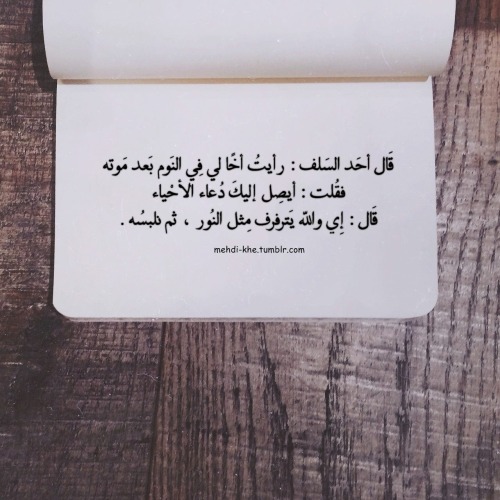 قَال أحَد السَلف : رأيتُ أخًا لي فِي النَوم بَعد مَوته
فقُلت : أيصِل إليكَ دُعاء الأحْياء
قَال : إِي واللّه يَترفرف مِثل النُور ، ثم نلبسُه .
mehdi-khe.tumblr.com